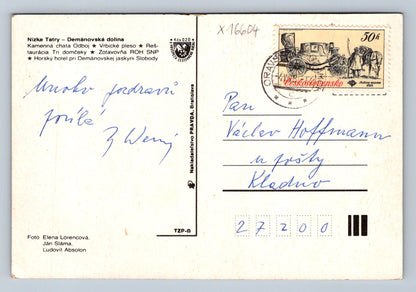 Nízke Tatry – Demänovská dolina
Kamenná chata Odboj ★ Vrbické pleso ★ Reš-
taurácia Tri domčeky ★ Zotavovňa ROH SNP
★ Horský hotel pri Demänovskej jaskyni Slobody
x 16604
50h
Československo
ORAVS
Mnoho pozdravů
posílá
Nakladateľstvo PRAVDA, Bratislava
Pan
Václav Hoffmann
u pošty
Kladno
27200
Foto Elena Lorencová,
Ján Sláma,
Ľudovít Absolon
TZP-G